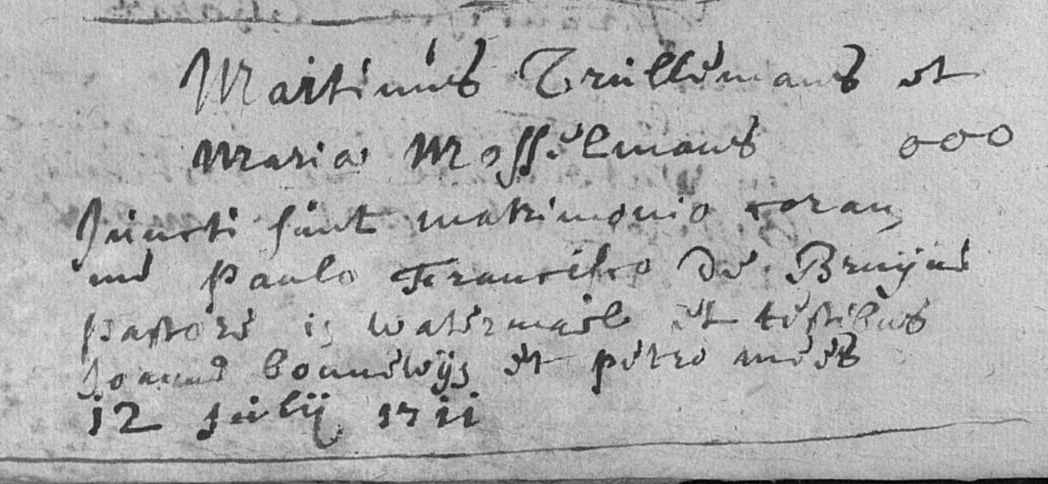 Martinus Trullemans et
Maria Mosselmans ooo
Juncti sunt matrimonio coram
me Paulo Francisco De Bruijne
pastore in watermael et testibus
Joanne bonnewijs et petro mees
12 julij 1711